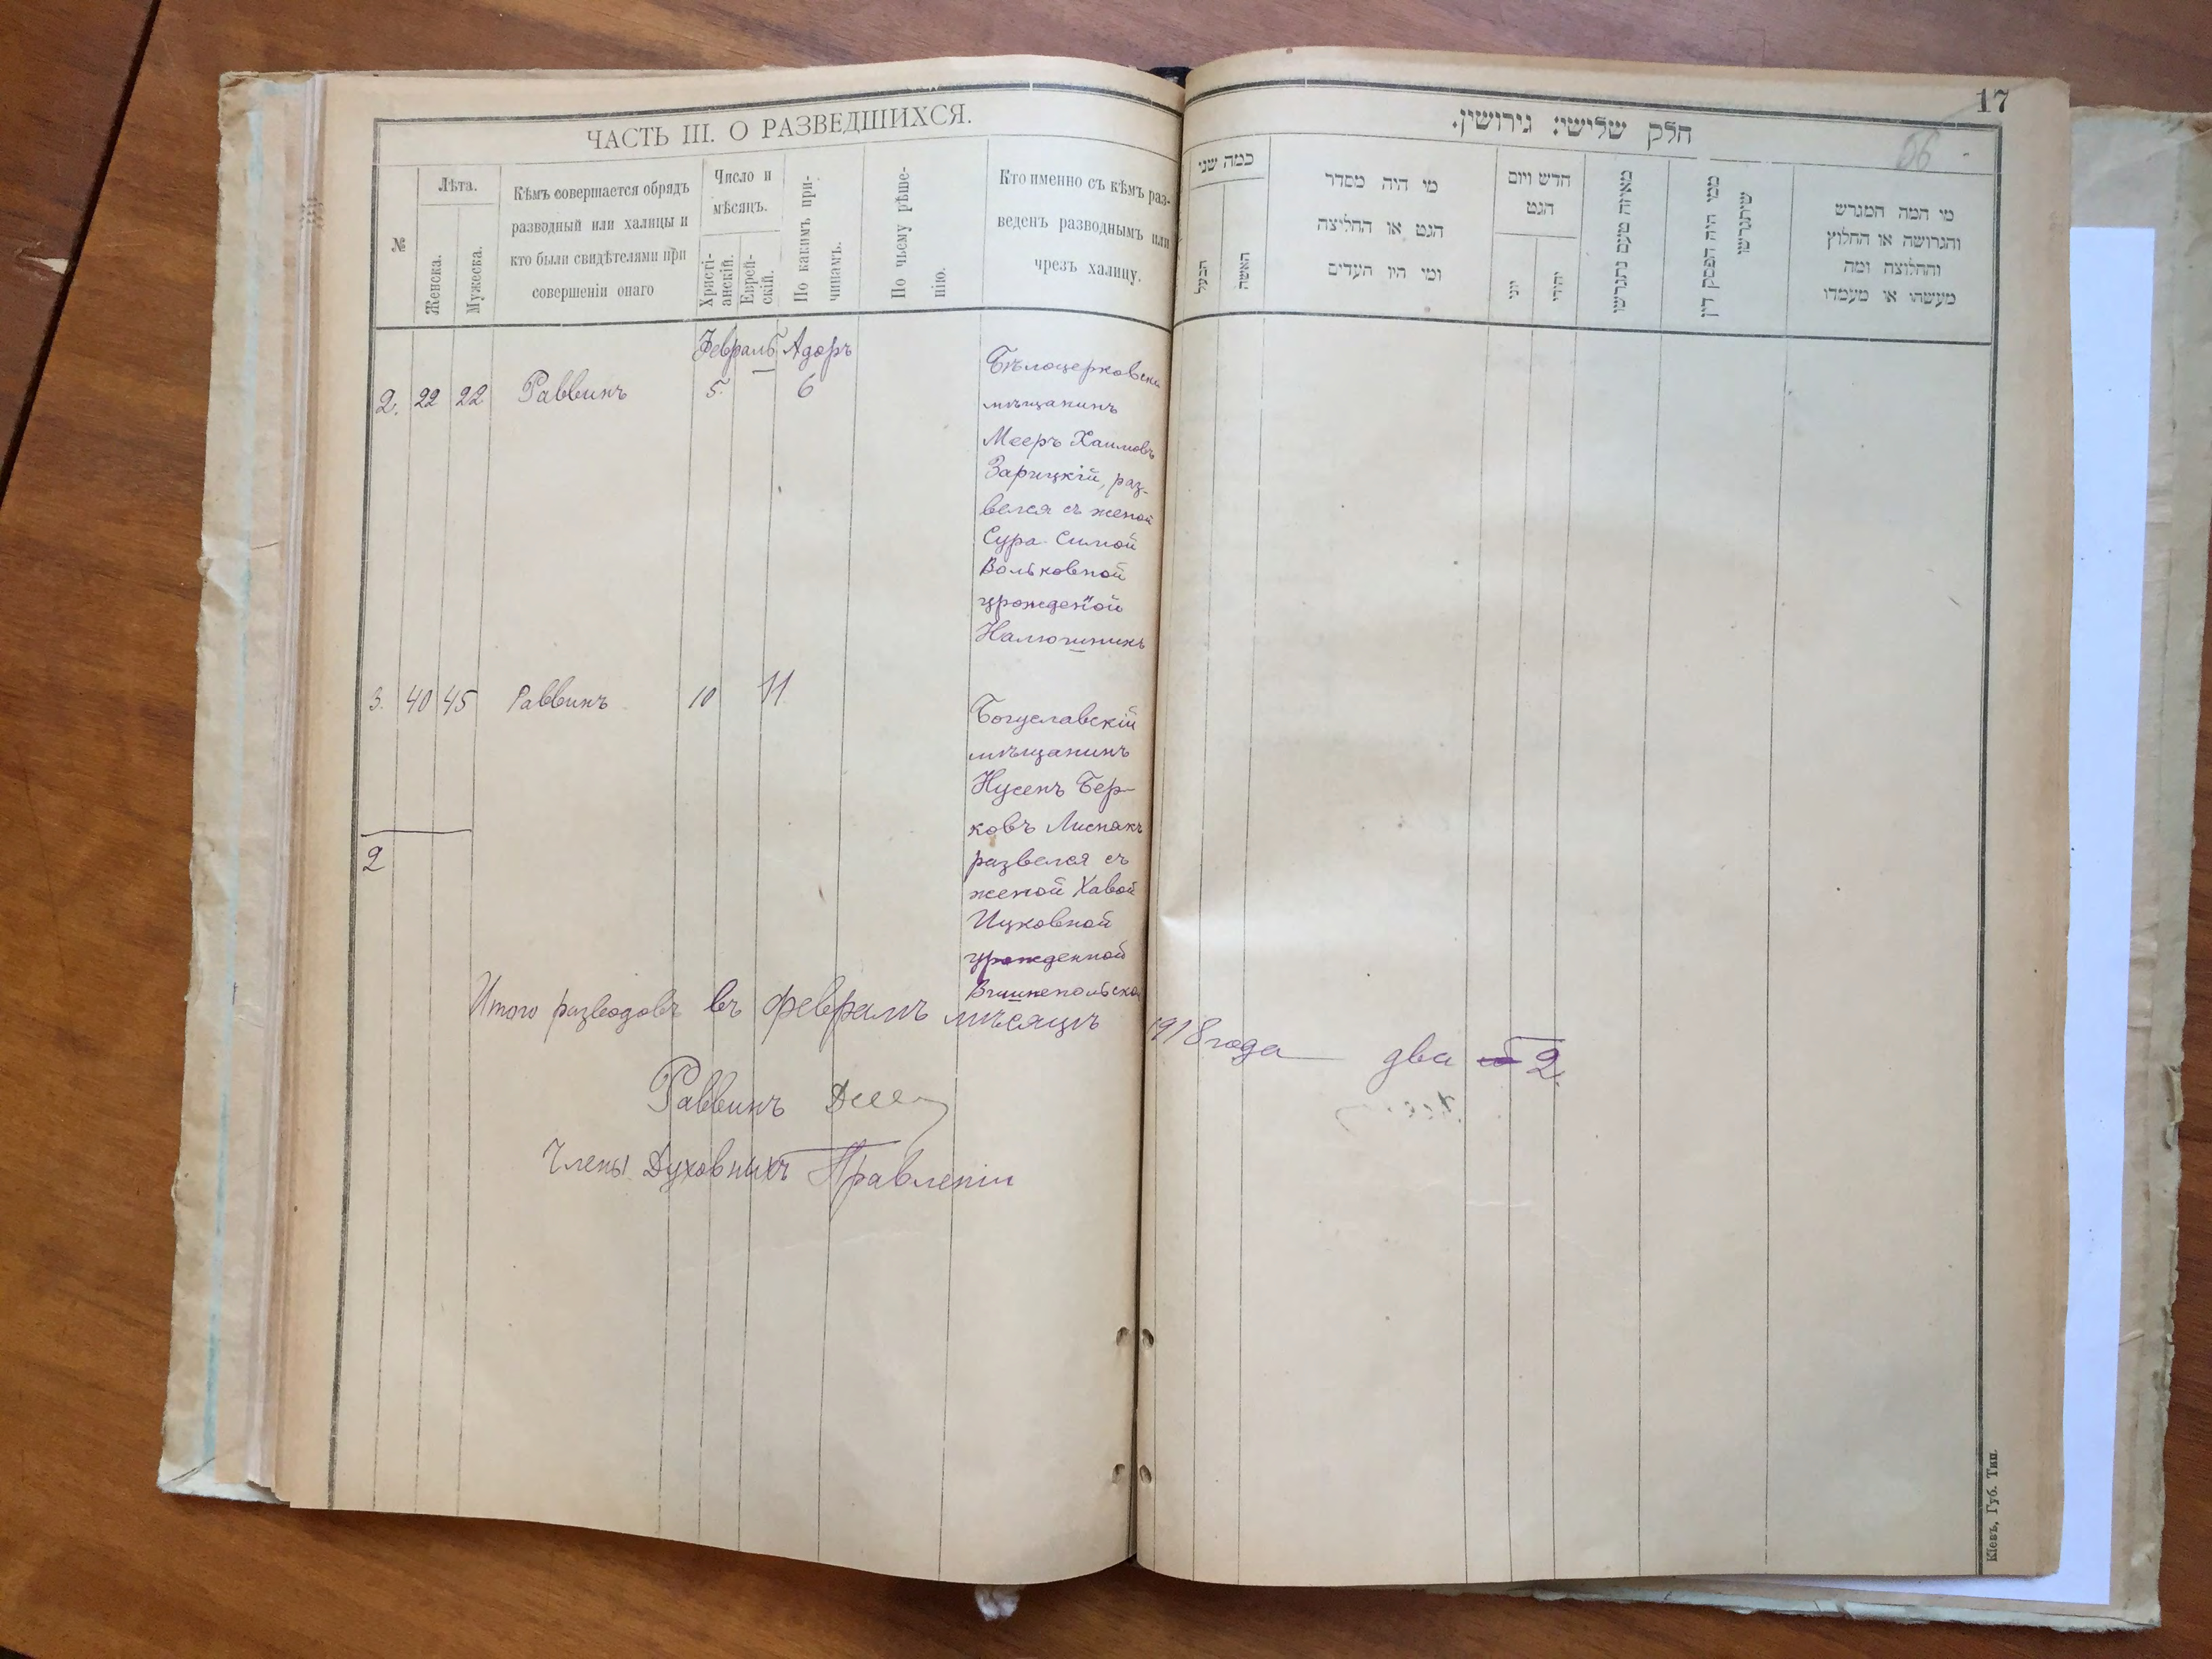 ЧАСТЬ III. О РАЗВЕДШИХСЯ.
№
Лѣта.
Женска.
Мужеска.
Кѣмъ совершается обрядъ
разводный или халицы и
кто были свидѣтелями при
совершеніи онаго
Число и
мѣсяцъ.
Христі-
анскій.
Еврей-
скій.
По какимъ при-
чинамъ.
По чьему рѣше-
нію.
Кто именно съ кѣмъ раз-
веденъ разводнымъ или
чрезъ халицу.
Февраль Адоръ
2. 22 22 Раввинъ 5. 6
Бѣлоцерковскій
мѣщанинъ
Мееръ Хаимовъ
Зарицкій, раз-
велся съ женой
Сура-Симой
Вольковной
урожденной
3. 40 45 Раввинъ 10 11
Богуславскій
мѣщанинъ
Нусенъ Бер-
ковъ Лиснякъ
развелся съ
женой Хавой
Ицковной
урожденной
Вишнепольской
2
Итого разводовъ въ февралѣ мѣсяцѣ 1918 года два 2.
Раввинъ
Члены Духовныхъ Правленіи
17
56
חלק שלישי: גירושין.
כמה שני
הבעל
האשה
מי היה מסדר
הגט או החליצה
ומי היו העדים
חדש ויום
הגט
יוני
יהודי
מאיזה טעם נתגרשו
ממי היה הפסק דין
שיתגרשו
מי המה המגרש
והגרושה או החלוץ
והחלוצה ומה
מעשהו או מעמדו
Кіевъ, Губ. Тип.